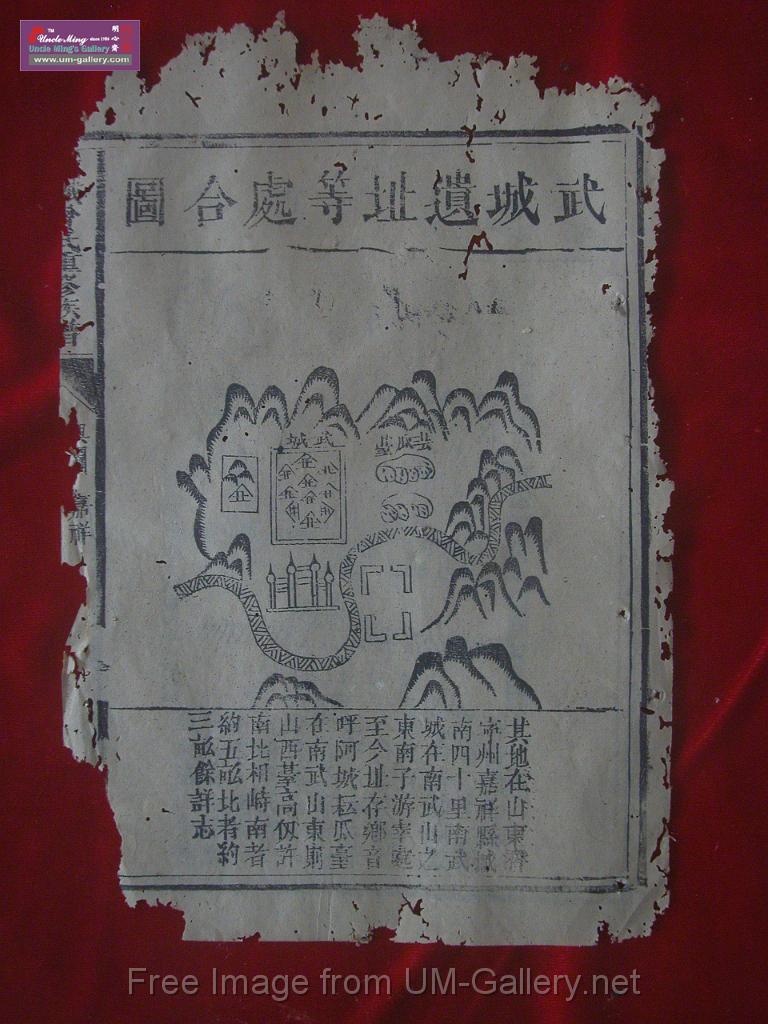 TM
Uncle Ming since 1984
Uncle Ming's Gallery
www.um-gallery.com
明心齋
武城遺址等處合圖
氏重修族譜
嘉祥
武城
芸瓜臺
其地在山東濟
寧州嘉祥縣城
南四十里南武
城在南武山之
東南子游宰處
至今址存鄉音
呼阿城耘瓜臺
在南武山東則
山西臺高仭許
南北相峙南者
約五畝北者約
三畝餘詳志
Free Image from UM-Gallery.net